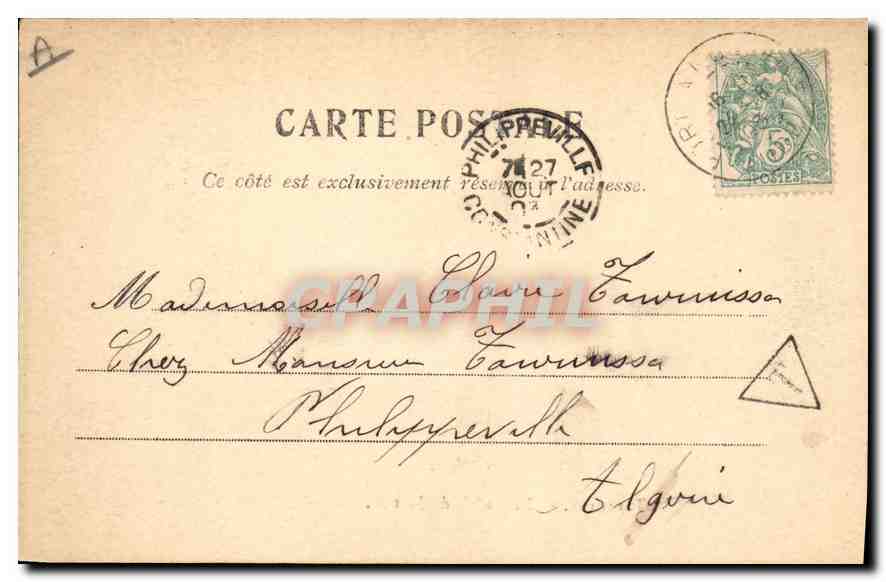 A
CARTE POSTALE
Ce côté est exclusivement réservé à l'adresse.
PHILIPPEVILLE
7E 27
AOUT
03
CONSTANTINE
5c
POSTES
CPAPHIL
Mademoiselle Claire
Chez Monsieur
T
Philippeville
Algérie